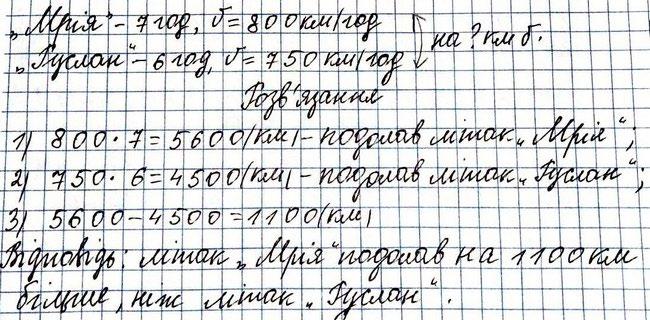 „Мрія" – 7 год, v = 800 км/год
„Руслан" – 6 год, v = 750 км/год
на ? км б.
Розв'язання
1) 800 · 7 = 5600 (км) – подолав літак „Мрія";
2) 750 · 6 = 4500 (км) – подолав літак „Руслан";
3) 5600 – 4500 = 1100 (км)
Відповідь: літак „Мрія" подолав на 1100 км
більше, ніж літак „Руслан".